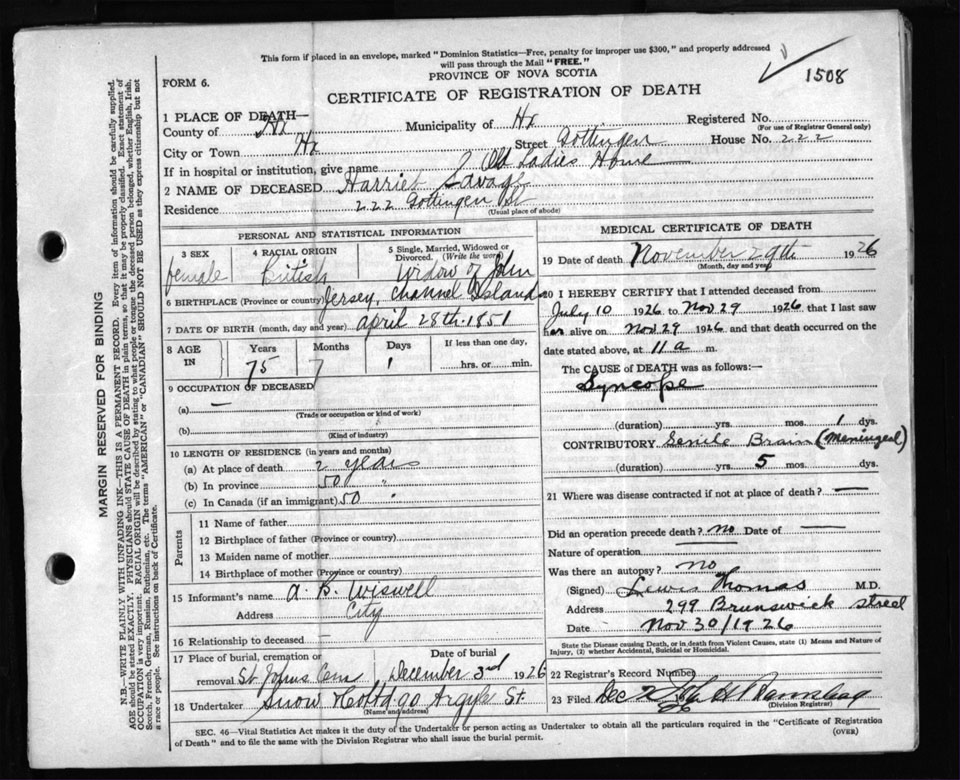 This form if placed in an envelope, marked "Dominion Statistics—Free, penalty for improper use $300," and properly addressed
will pass through the Mail "FREE."
1508
FORM 6.
PROVINCE OF NOVA SCOTIA
CERTIFICATE OF REGISTRATION OF DEATH
1 PLACE OF DEATH—
County of Hx Municipality of Hx Registered No.
(For use of Registrar General only)
City or Town Hx Street Gottingen House No. 222
If in hospital or institution, give name Old Ladies Home
2 NAME OF DECEASED Harriet Savage
Residence 222 Gottingen St
(Usual place of abode)
PERSONAL AND STATISTICAL INFORMATION
3 SEX
female
4 RACIAL ORIGIN
British
5 Single, Married, Widowed or
Divorced. (Write the word)
Widow of John
6 BIRTHPLACE (Province or country) Jersey, Channel Island
7 DATE OF BIRTH (month, day and year) april 28th 1851
8 AGE
IN
Years
75
Months
7
Days
1
If less than one day,
hrs. or min.
9 OCCUPATION OF DECEASED
(a) —
(Trade or occupation or kind of work)
(b)
(Kind of industry)
10 LENGTH OF RESIDENCE (in years and months)
(a) At place of death 2 years
(b) In province 50 "
(c) In Canada (if an immigrant) 50 "
Parents
11 Name of father
12 Birthplace of father (Province or country)
13 Maiden name of mother
14 Birthplace of mother (Province or country)
15 Informant's name A. B. Wiswell
Address City
16 Relationship to deceased —
17 Place of burial, cremation or
removal St Johns Cem
Date of burial
December 3rd 1926
18 Undertaker Snow & Co Ltd 90 Argyle St.
(Name and address)
MEDICAL CERTIFICATE OF DEATH
19 Date of death November 29th 1926
(Month, day and year)
20 I HEREBY CERTIFY that I attended deceased from
July 10 1926 to Nov 29 1926 that I last saw
her alive on Nov 29 1926 and that death occurred on the
date stated above, at 11 a m.
The CAUSE of DEATH was as follows:—
Syncope
(duration) yrs. mos. 1 dys.
CONTRIBUTORY Senile Brain (Meningeal)
(duration) yrs. 5 mos. dys.
21 Where was disease contracted if not at place of death? —
Did an operation precede death? no Date of —
Nature of operation —
Was there an autopsy? no
(Signed) Lewis Thomas M.D.
Address 299 Brunswick street
Date Nov 30/1926
State the Disease causing Death, or in death from Violent Causes, state (1) Means and Nature of
Injury, (2) whether Accidental, Suicidal or Homicidal.
22 Registrar's Record Number
23 Filed Dec
(Division Registrar)
SEC. 46—Vital Statistics Act makes it the duty of the Undertaker or person acting as Undertaker to obtain all the particulars required in the "Certificate of Registration
of Death" and to file the same with the Division Registrar who shall issue the burial permit.
(OVER)
MARGIN RESERVED FOR BINDING
N.B.—WRITE PLAINLY WITH UNFADING INK—THIS IS A PERMANENT RECORD. Every item of information should be carefully supplied.
AGE should be stated EXACTLY. PHYSICIANS should STATE CAUSE OF DEATH in plain terms, so that it may be properly classified. Exact statement of
OCCUPATION is very important. RACIAL ORIGIN will be described by stating to what people or tongue the deceased person belonged, whether English, Irish,
Scotch, French, German, Russian, Ruthenian, etc. The terms "AMERICAN" or "CANADIAN" SHOULD NOT BE USED as they express citizenship but not
a race or people. See instructions on back of Certificate.